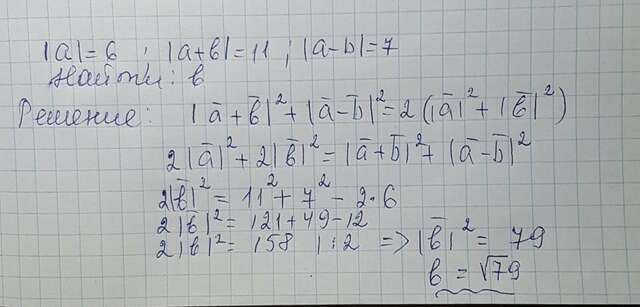 |a|=6 ; |a+b|=11 ; |a-b|=7
Найти: b
Решение: |a̅+b̅|²+|a̅-b̅|²=2(|a̅|²+|b̅|²)
2|a̅|²+2|b̅|²=|a̅+b̅|²+|a̅-b̅|²
2|b̅|²=11²+7²-2·6
2|b|²=121+49-12
2|b|²=158 |:2 => |b̅|²=79
b=√79